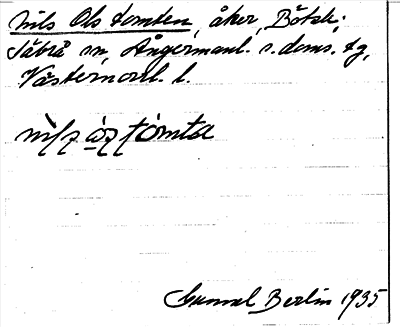 Nils Ols tomten, åker, Bötsle,
Säbrå sn, Ångermanl. s. doms. tg,
Västernorrl. l.
nìls òs tómta
Gunnel Berlin 1935